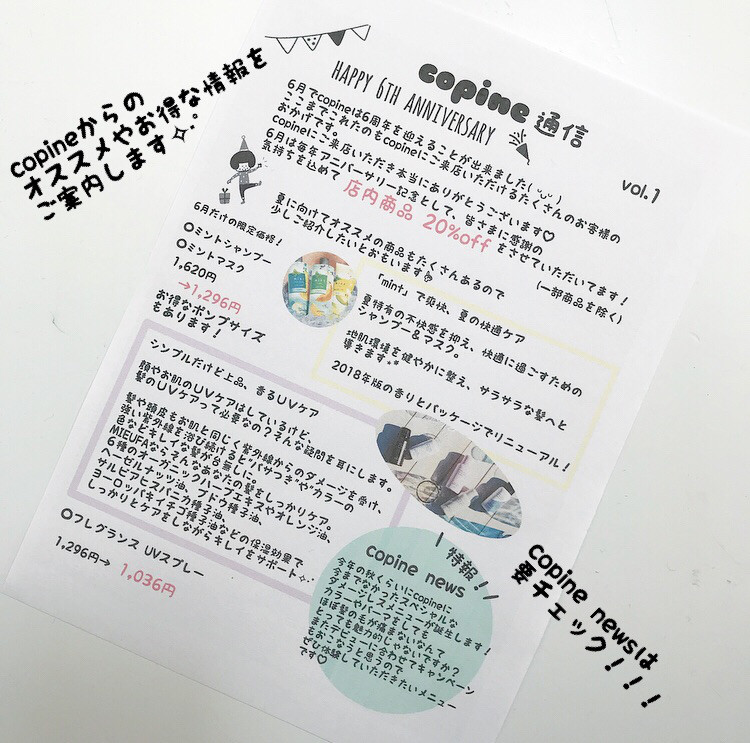 copineからの
オススメやお得な情報を
ご案内します✧.°
copine 通信
HAPPY 6TH ANNIVERSARY
vol.1
6月でcopineは6周年を迎えることが出来ました( ᵕᴗᵕ )
ここまでこれたのもcopineにご来店いただけるたくさんのお客様の
おかげです。
copineにご来店いただき本当にありがとうございます♡
6月は毎年アニバーサリー記念として、皆さまに感謝の
気持ちを込めて 店内商品 20%off をさせていただいてます!
(一部商品を除く)
夏に向けてオススメの商品もたくさんあるので
少しご紹介したいとおもいます
6月だけの限定価格!
○ミントシャンプー
○ミントマスク
1,620円
→1,296円
お得なポンプサイズ
もあります!
「mint」で爽快、夏の快適ケア
夏特有の不快感を抑え、快適に過ごすための
シャンプー&マスク。
地肌環境を健やかに整え、サラサラな髪へと
導きます*°
2018年版の香りとパッケージでリニューアル!
シンプルだけど上品、香るUVケア
顔やお肌のUVケアはしているけど、
髪のUVケアって必要なの?そんな疑問を耳にします。
髪や頭皮もお肌と同じく紫外線からのダメージを受け、
強い紫外線を浴び続けると"パサつき"や"カラーの
色などキレイな髪が台無しに。
MIEUFAならそんなあなたの髪をしっかりケア。
6種のオーガニックハーブエキスやオレンジ油、
ヘーゼルナッツ油、ブドウ種子油、
サルビアヒスパニカ種子油、
ヨーロッパキイチゴ種子油などの保湿効果で
しっかりとケアをしながらキレイをサポート✧.°
○フレグランス UVスプレー
1,296円→ 1,036円
\ 特報! /
copine news
今年の秋くらいにcopineに
今までなかったスペシャルな
ダメージレスメニューが誕生します!
カラーやパーマをしても
ほぼ髪のもが痛まないなんて
とっても魅力的じゃないですか?
またデビューに合わせてキャンペーン
もおこなうと思うので
ぜひ体験していただきたいメニュー
です♡
copine newsは
要チェック!!!